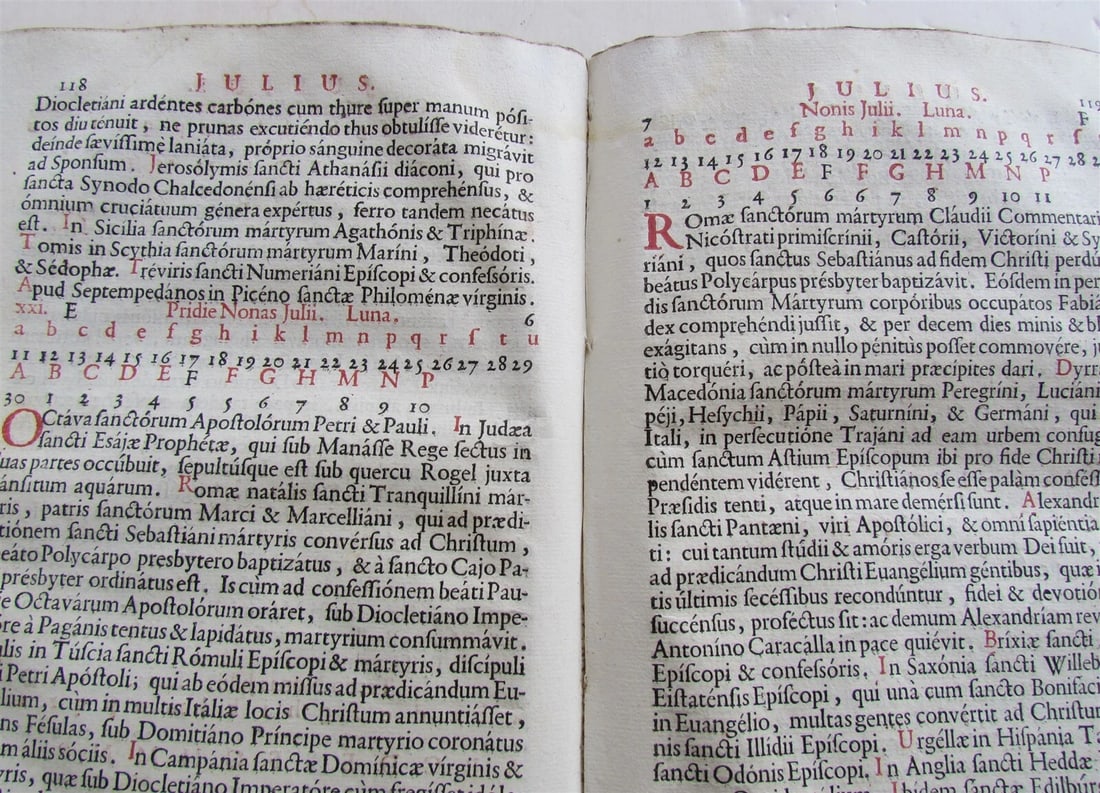 118 JULIUS.
Diocletiáni ardéntes carbónes cum thure ſuper manum póſi-
tos diu ténuit, ne prunas excutiéndo thus obtulíſſe viderétur:
deínde ſævíſſimè laniáta, próprio sánguine decoráta migrávit
ad Sponſum. Jeroſólymis ſancti Athanáſii diáconi, qui pro
ſancta Synodo Chalcedonénſi ab hæréticis comprehénſus, &
ómnium cruciátuum génera expértus, ferro tandem necátus
eſt. In Sicilia ſanctórum mártyrum Agathónis & Triphínæ.
Tomis in Scythia ſanctórum mártyrum Maríni, Theódoti,
& Sédophæ. Tréviris ſancti Numeriáni Epíſcopi & confeſſóris.
Apud Septempedános in Picéno ſanctæ Philoménæ vírginis.
xxi. E Pridie Nonas Julii. Luna. 6
a b c d e f g h i k l m n p q r ſ t u
11 12 13 14 15 16 17 18 19 20 21 22 23 24 25 26 27 28 29
A B C D E F F G H M N P
30 1 2 3 4 5 5 6 7 8 9 10
OCtáva ſanctórum Apoſtolórum Petri & Pauli. In Judæa
ſancti Eſájæ Prophétæ, qui ſub Manáſſe Rege ſectus in
uas partes occúbuit, ſepultúſque eſt ſub quercu Rogel juxta
ánſitum aquárum. Romæ natális ſancti Tranquillíni már-
ris, patris ſanctórum Marci & Marcelliáni, qui ad prædi-
tiónem ſancti Sebaſtiáni mártyris convérſus ad Chriſtum,
eáto Polycárpo presbytero baptizátus, & à ſancto Cajo Pa-
présbyter ordinátus eſt. Is cùm ad confeſſiónem beáti Pau-
ie Octavárum Apoſtolórum oráret, ſub Diocletiáno Impe-
óre à Pagánis tentus & lapidátus, martyrium conſummávit.
ulis in Túſcia ſancti Rómuli Epíſcopi & mártyris, diſcípuli
i Petri Apóſtoli; qui ab eódem miſſus ad prædicándum Eu-
lium, cùm in multis Itáliæ locis Chriſtum annuntiáſſet,
ns Féſulas, ſub Domitiáno Príncipe martyrio coronátus
m áliis sóciis. In Campánia ſanctæ Domínicæ vírginis &
yris, quæ ſub Diocletiáno Imperatóre cùm
JULIUS. 119
7 Nonis Julii. Luna. F
a b c d e f g h i k l m n p q r ſ
12 13 14 15 16 17 18 19 20 21 22 23 24 25 26 27 28 2
A B C D E F F G H M N P
1 2 3 4 5 6 6 7 8 9 10 11
ROmæ ſanctórum mártyrum Cláudii Commentari
Nicóſtrati primiſcrínii, Caſtórii, Victoríni & Sy
riáni, quos ſanctus Sebaſtiánus ad fidem Chriſti perdú
beátus Polycárpus présbyter baptizávit. Eóſdem in per
dis ſanctórum Mártyrum corpóribus occupátos Fabiá
dex comprehéndi juſſit, & per decem dies minis & bl
exágitans, cùm in nullo pénitùs poſſet commovére, ju
tiò torquéri, ac póſteà in mari præcípites dari. Dyrr
Macedónia ſanctórum mártyrum Peregríni, Luciáni
péji, Heſychii, Pápii, Saturníni, & Germáni, qui
Itali, in perſecutióne Trajáni ad eam urbem confug
cùm ſanctum Aſtium Epíſcopum ibi pro fide Chriſti
pendéntem vidérent, Chriſtiános ſe eſſe palàm confeſſ
Præſidis tenti, atque in mare demérſi ſunt. Alexandr
lis ſancti Pantæni, viri Apoſtólici, & omni ſapiéntia
ti: cui tantum ſtúdii & amóris erga verbum Dei fuit,
ad prædicándum Chriſti Euangélium géntibus, quæ i
tis últimis ſecéſſibus recondúntur, fidei & devotió
ſuccénſus, profectus ſit: ac demum Alexandríam rev
Antoníno Caracálla in pace quiévit. Bríxiæ ſancti
Epíſcopi & confeſſóris. In Saxónia ſancti Willeb
Eiſtaténſis Epíſcopi, qui unà cum ſancto Bonifaci
in Euangélio, multas gentes convértit ad Chriſtum
nis ſancti Illídii Epíſcopi. Urgéllæ in Hiſpánia Ta
ſancti Odónis Epíſcopi. In Anglia ſancti Heddæ
Ibidem ſanctæ Edilbúr